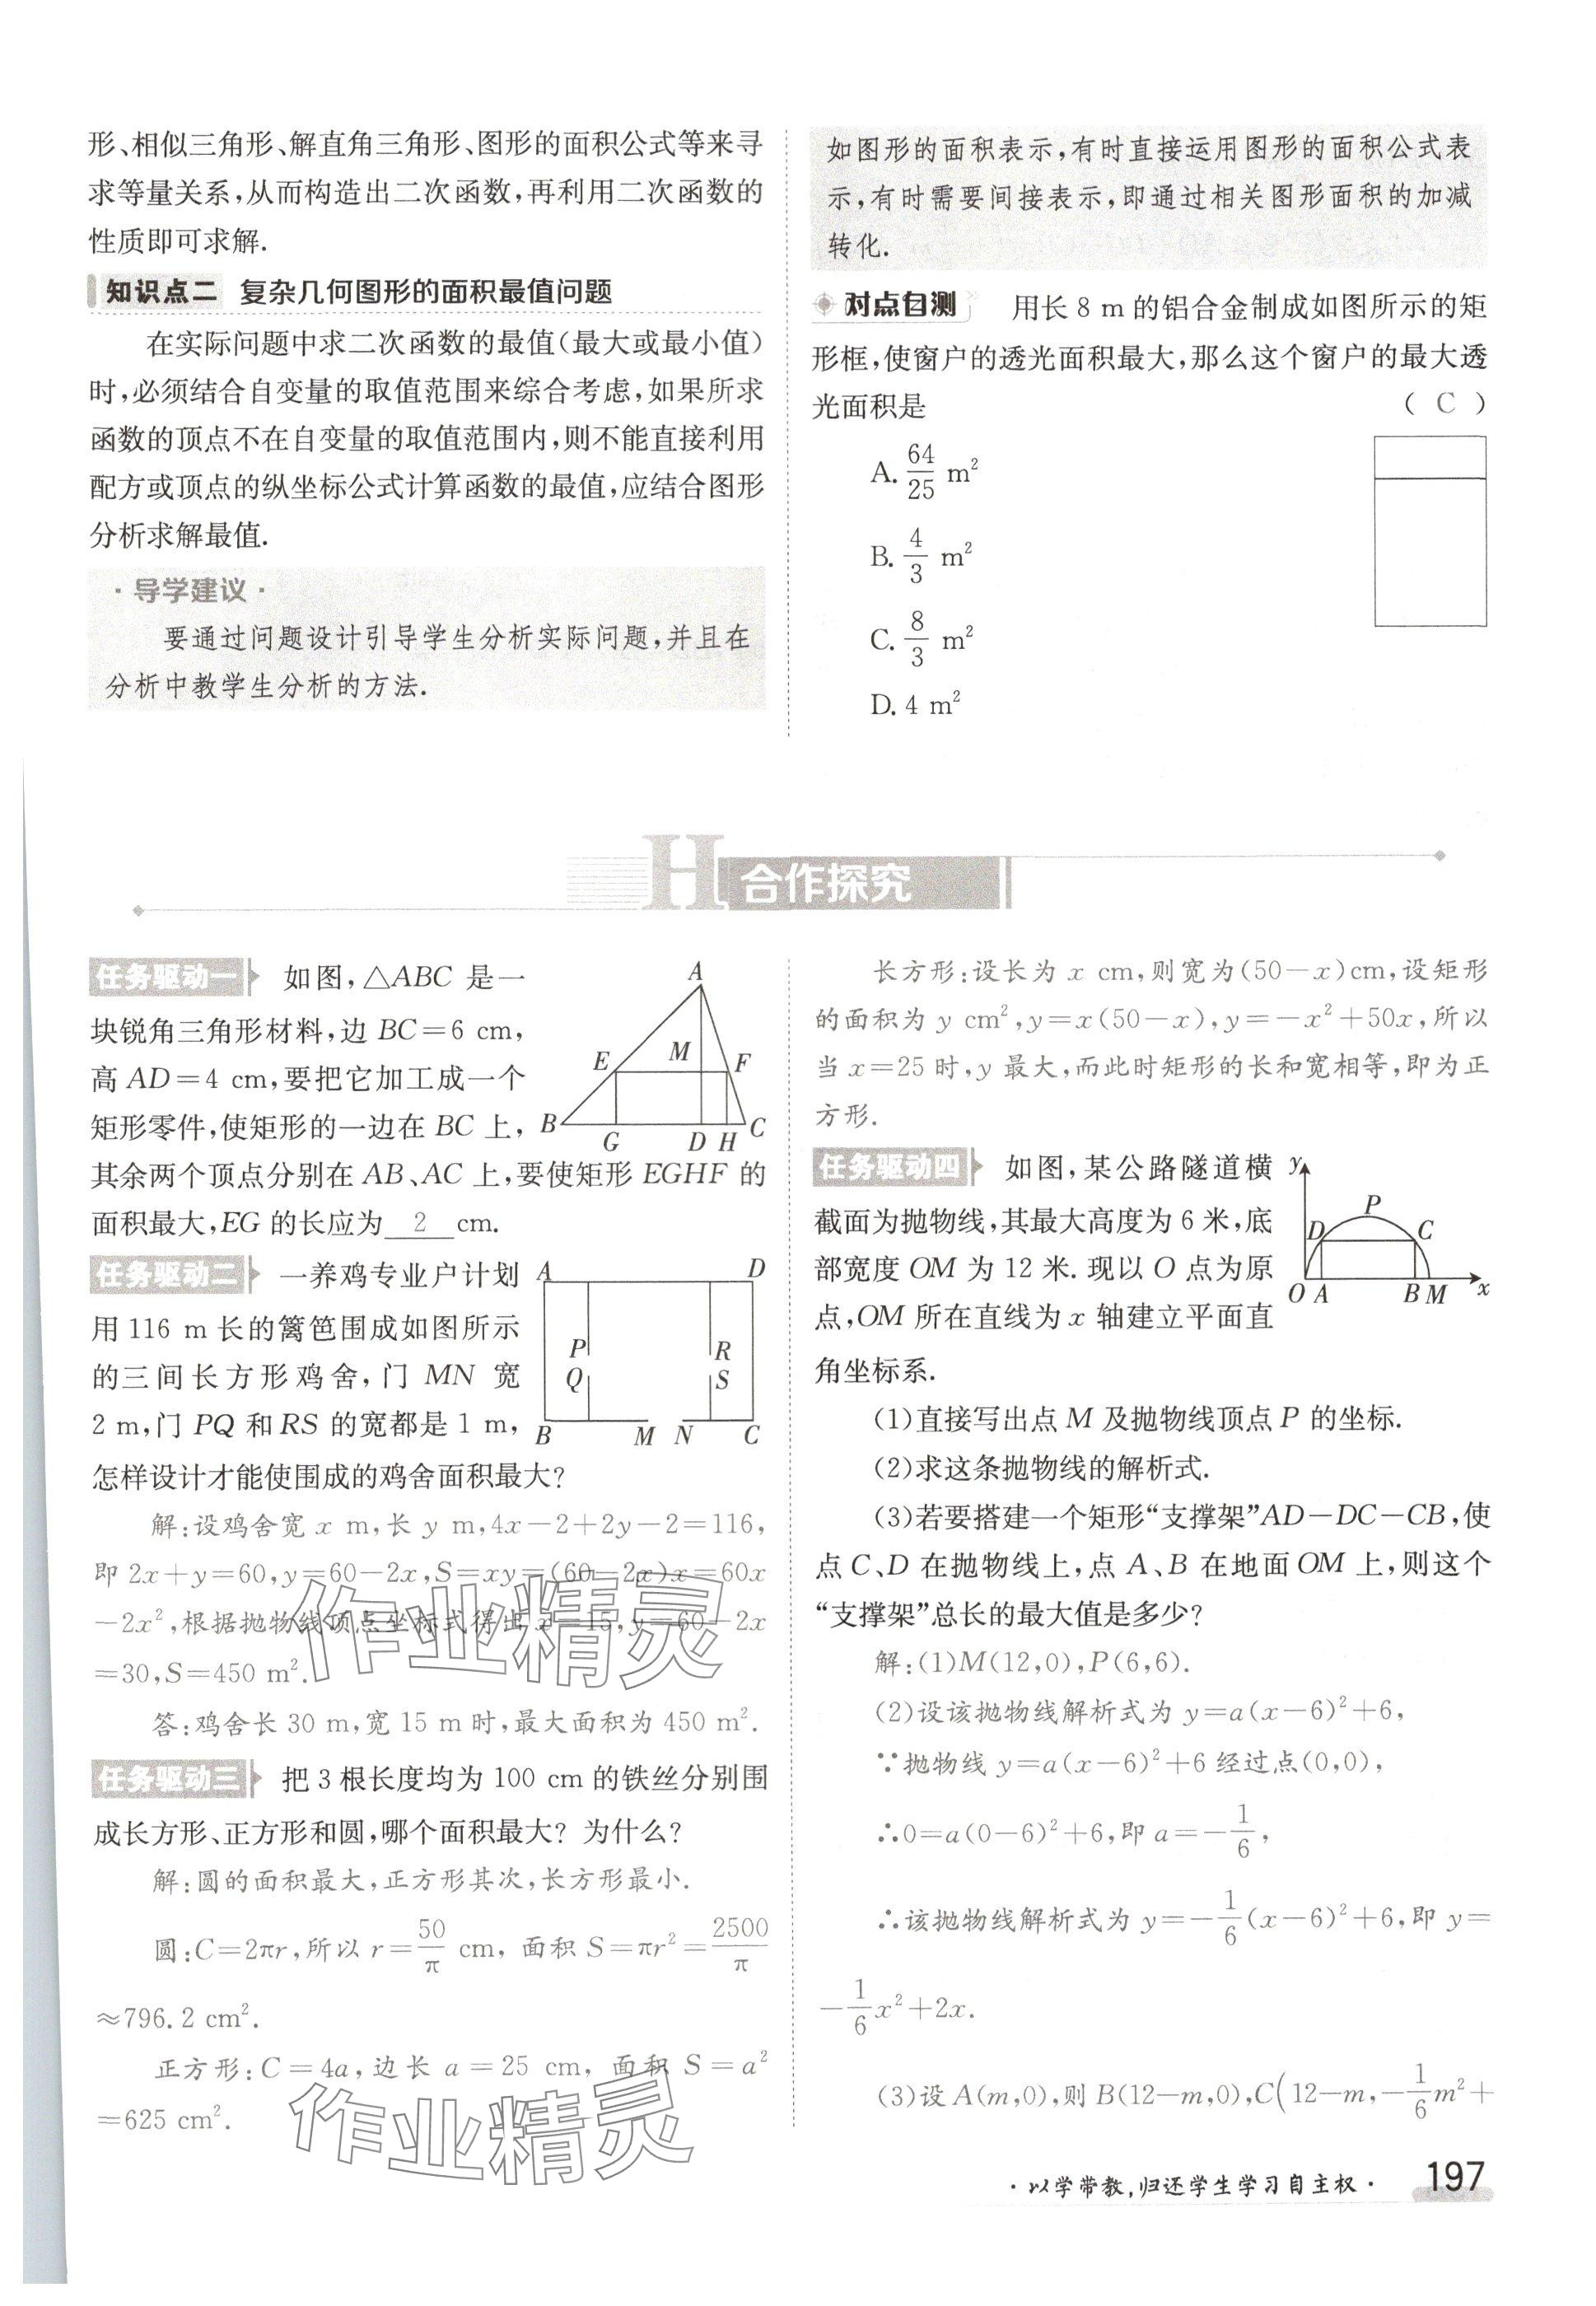 形、相似三角形、解直角三角形、图形的面积公式等来寻
求等量关系,从而构造出二次函数,再利用二次函数的
性质即可求解.
知识点二 复杂几何图形的面积最值问题
在实际问题中求二次函数的最值(最大或最小值)
时,必须结合自变量的取值范围来综合考虑,如果所求
函数的顶点不在自变量的取值范围内,则不能直接利用
配方或顶点的纵坐标公式计算函数的最值,应结合图形
分析求解最值.
·导学建议·
要通过问题设计引导学生分析实际问题,并且在
分析中教学生分析的方法.
如图形的面积表示,有时直接运用图形的面积公式表
示,有时需要间接表示,即通过相关图形面积的加减
转化.
对点自测 用长 8 m 的铝合金制成如图所示的矩
形框,使窗户的透光面积最大,那么这个窗户的最大透
光面积是 ( C )
A. 64/25 m²
B. 4/3 m²
C. 8/3 m²
D. 4 m²
H 合作探究
任务驱动一 如图,△ABC 是一
块锐角三角形材料,边 BC=6 cm,
高 AD=4 cm,要把它加工成一个
矩形零件,使矩形的一边在 BC 上,
其余两个顶点分别在 AB、AC 上,要使矩形 EGHF 的
面积最大,EG 的长应为 2 cm.
A
E M F
B G D H C
任务驱动二 一养鸡专业户计划
用 116 m 长的篱笆围成如图所示
的三间长方形鸡舍,门 MN 宽
2 m,门 PQ 和 RS 的宽都是 1 m,
怎样设计才能使围成的鸡舍面积最大?
A D
P R
Q S
B M N C
解:设鸡舍宽 x m,长 y m,4x-2+2y-2=116,
即 2x+y=60,y=60-2x,S=xy=(60-2x)x=60x
-2x²,根据抛物线顶点坐标式得出 x=15,y=60-2x
=30,S=450 m².
答:鸡舍长 30 m,宽 15 m 时,最大面积为 450 m².
任务驱动三 把 3 根长度均为 100 cm 的铁丝分别围
成长方形、正方形和圆,哪个面积最大? 为什么?
解:圆的面积最大,正方形其次,长方形最小.
圆:C=2πr,所以 r=50/π cm, 面积 S=πr²=2500/π
≈796.2 cm².
正方形:C=4a,边长 a=25 cm, 面积 S=a²
=625 cm².
长方形:设长为 x cm,则宽为(50-x)cm,设矩形
的面积为 y cm²,y=x(50-x),y=-x²+50x,所以
当 x=25 时,y 最大,而此时矩形的长和宽相等,即为正
方形.
任务驱动四 如图,某公路隧道横
截面为抛物线,其最大高度为 6 米,底
部宽度 OM 为 12 米. 现以 O 点为原
点,OM 所在直线为 x 轴建立平面直
角坐标系.
y
P
D C
O A B M x
(1)直接写出点 M 及抛物线顶点 P 的坐标.
(2)求这条抛物线的解析式.
(3)若要搭建一个矩形“支撑架”AD-DC-CB,使
点 C、D 在抛物线上,点 A、B 在地面 OM 上,则这个
“支撑架”总长的最大值是多少?
解:(1)M(12,0),P(6,6).
(2)设该抛物线解析式为 y=a(x-6)²+6,
∵抛物线 y=a(x-6)²+6 经过点(0,0),
∴0=a(0-6)²+6,即 a=-1/6,
∴该抛物线解析式为 y=-1/6(x-6)²+6,即 y=
-1/6x²+2x.
(3)设 A(m,0),则 B(12-m,0),C(12-m,-1/6m²+
作业精灵
作业精灵
·以学带教,归还学生学习自主权·
197